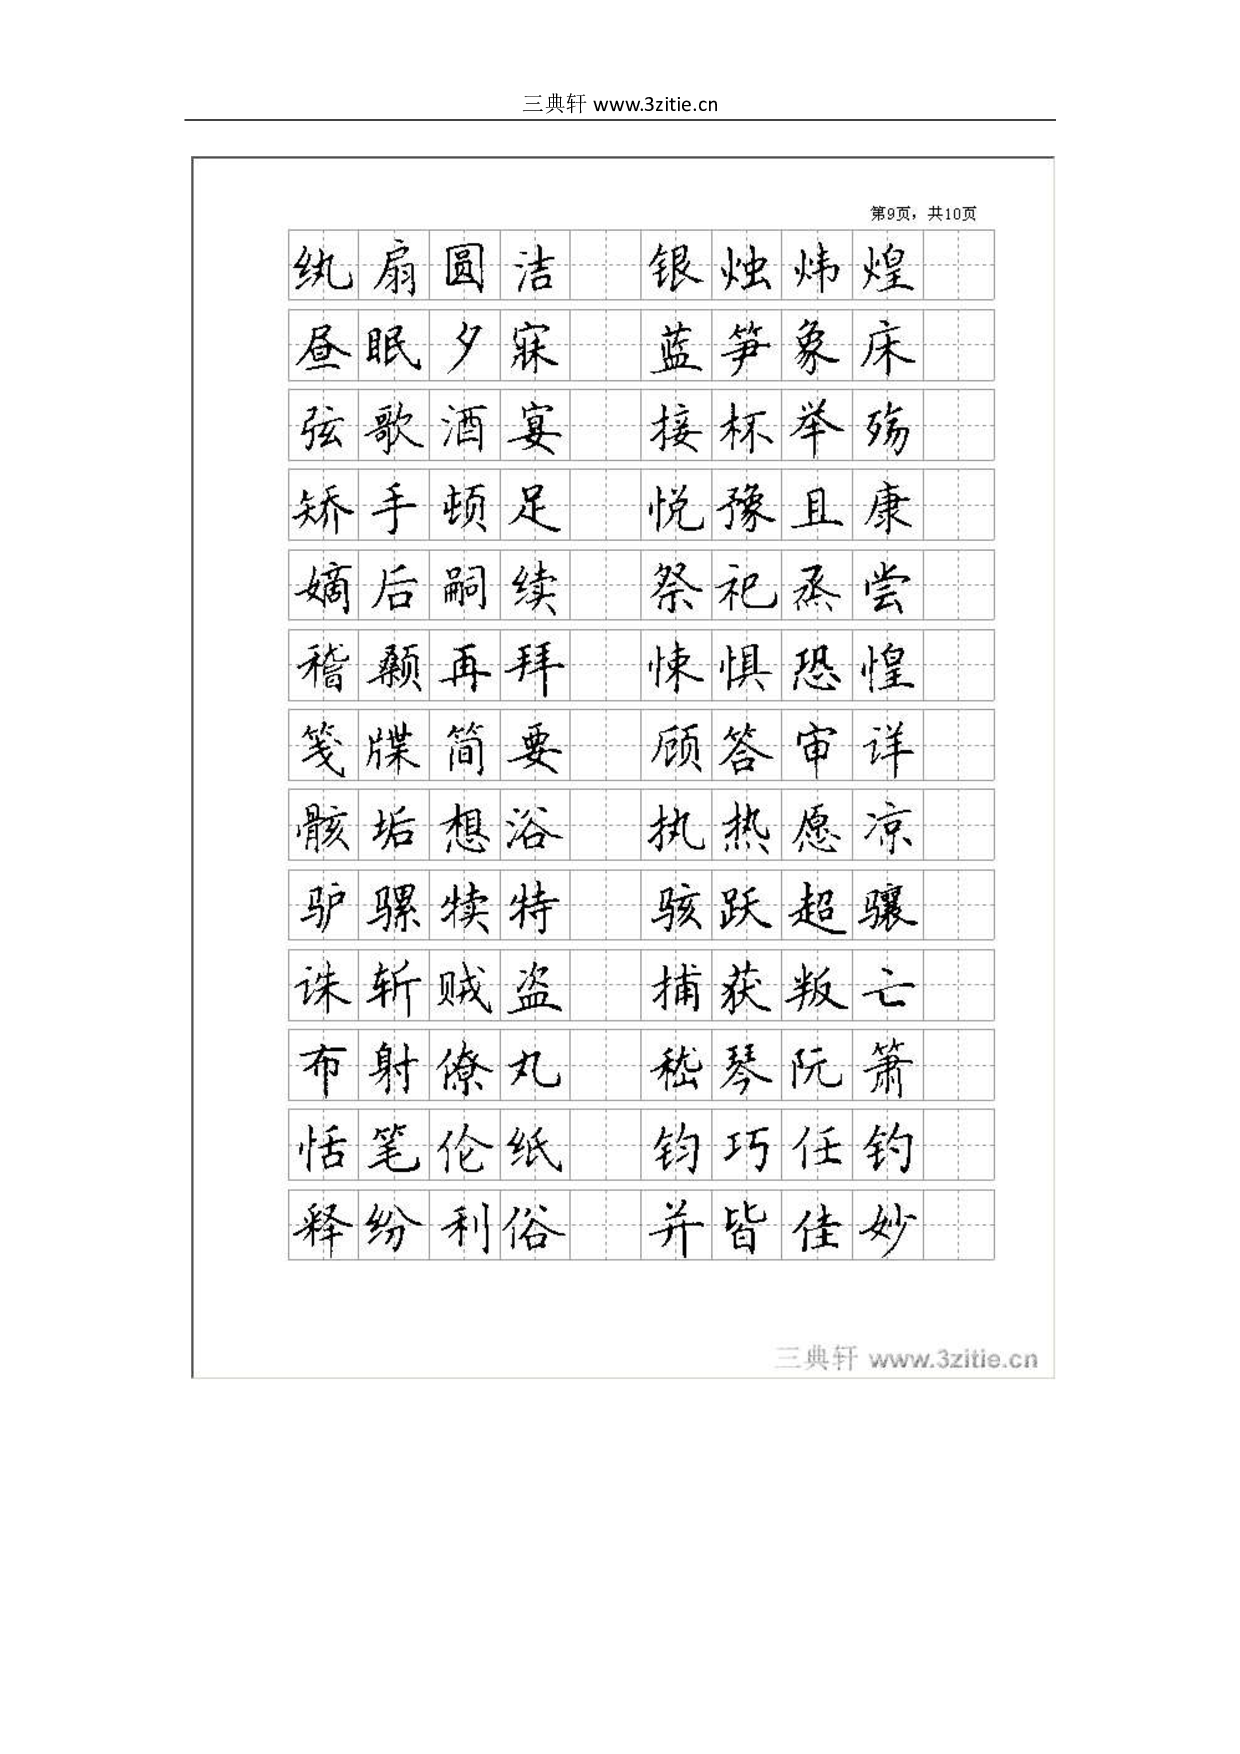 三典轩 www.3zitie.cn
第9页，共10页
纨扇圆洁 银烛炜煌
昼眠夕寐 蓝笋象床
弦歌酒宴 接杯举殇
矫手顿足 悦豫且康
嫡后嗣续 祭祀蒸尝
稽颡再拜 悚惧恐惶
笺牒简要 顾答审详
骸垢想浴 执热愿凉
驴骡犊特 骇跃超骧
诛斩贼盗 捕获叛亡
布射僚丸 嵇琴阮箫
恬笔伦纸 钧巧任钓
释纷利俗 并皆佳妙
三典轩 www.3zitie.cn